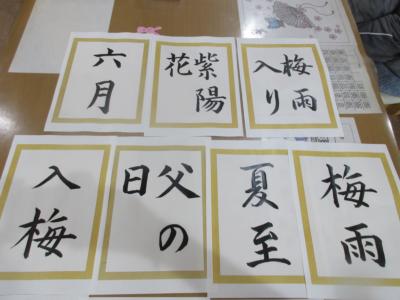 六月
紫陽
花
梅雨
入り
入梅
父の
日
夏至
梅雨